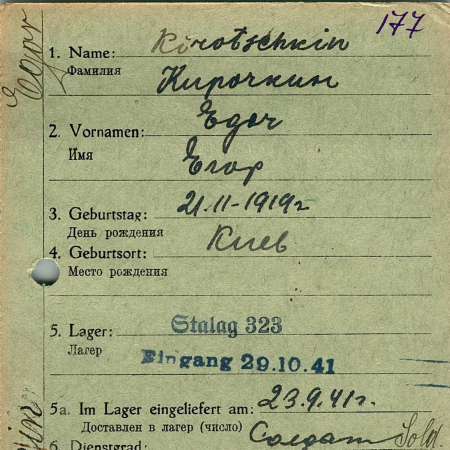 177
1. Name: Kirotschkin
Фамилия
Кирочкин
2. Vornamen: Egor
Имя
Егор
3. Geburtstag: 21.11-1919г
День рождения
4. Geburtsort: Киев
Место рождения
5. Lager: Stalag 323
Лагерь
Eingang 29.10.41
5a. Im Lager eingeliefert am: 23.9.41г.
Доставлен в лагерь (число)
6. Dienstgrad: Солдат Sold.
Egor